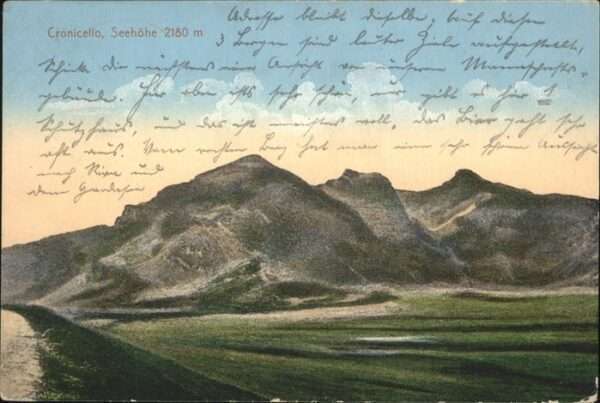 Cronicello, Seehöhe 2180 m
Adresse bleibt dieselbe, auf diesen
3 Bergen sind lauter Ziele aufgestellt,
Schicke dir nächstens eine Ansicht von unserem Mannschafts-
gebäude. Hier oben ists sehr schön, nur gibt es hier 1
Schutzhaus, und das ist meistens voll, das Bier geht sehr
oft aus. Vom rechten Berg hat man eine sehr schöne Aussicht
nach Riva und
dem Gardasee